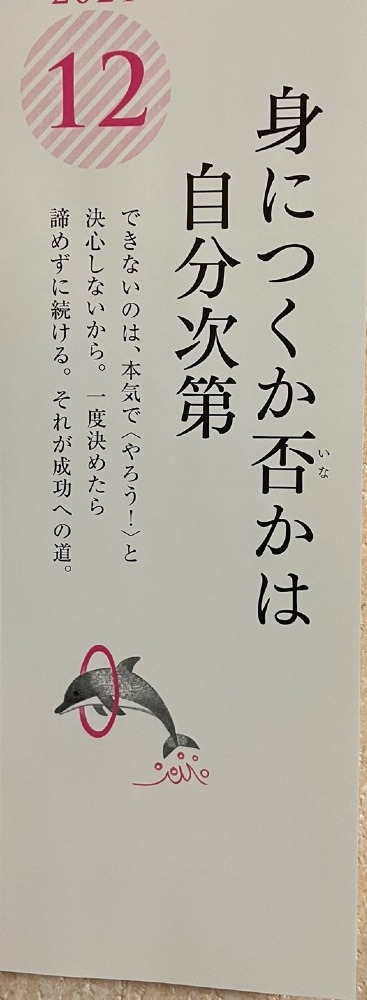 12
身につくか否かは
いな
自分次第
できないのは、本気で〈やろう！〉と
決心しないから。一度決めたら
諦めずに続ける。それが成功への道。